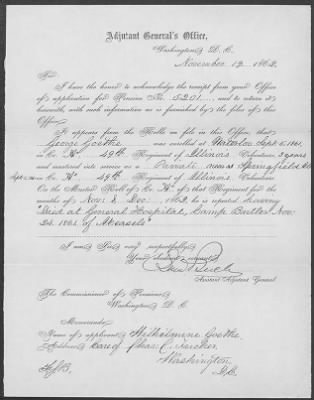 Adjutant General's Office,
Washington, D. C.
November 12, 1862.
Sir:
I have the honor to acknowledge the receipt from your Office
of application for Pension No. 5201, and to return it
herewith, with such information as is furnished by the files of this
Office.
It appears from the Rolls on file in this Office, that
George Goethe was enrolled at Waterloo Sept 5, 1861,
in Co. K, 49th Regiment of Illinois Volunteers 3 years
and mustered into service as a Private, near Springfield Ills
in Co. K 49th Regiment of Illinois Volunteers.
On the Muster Roll of Co. K of that Regiment for the
months of Nov. & Dec. he is reported
"Died at General Hospital, Camp Butler Nov.
24, 1861 of Measels"
I am Sir, very respectfully,
Your obedient servant,
Assistant Adjutant General
The Commissioner of Pensions,
Washington, D. C.
Memoranda:
Name of applicant, Wilhelmine Goethe.
Address, Care of Chas. C. Tucker,
Washington,
D.C.